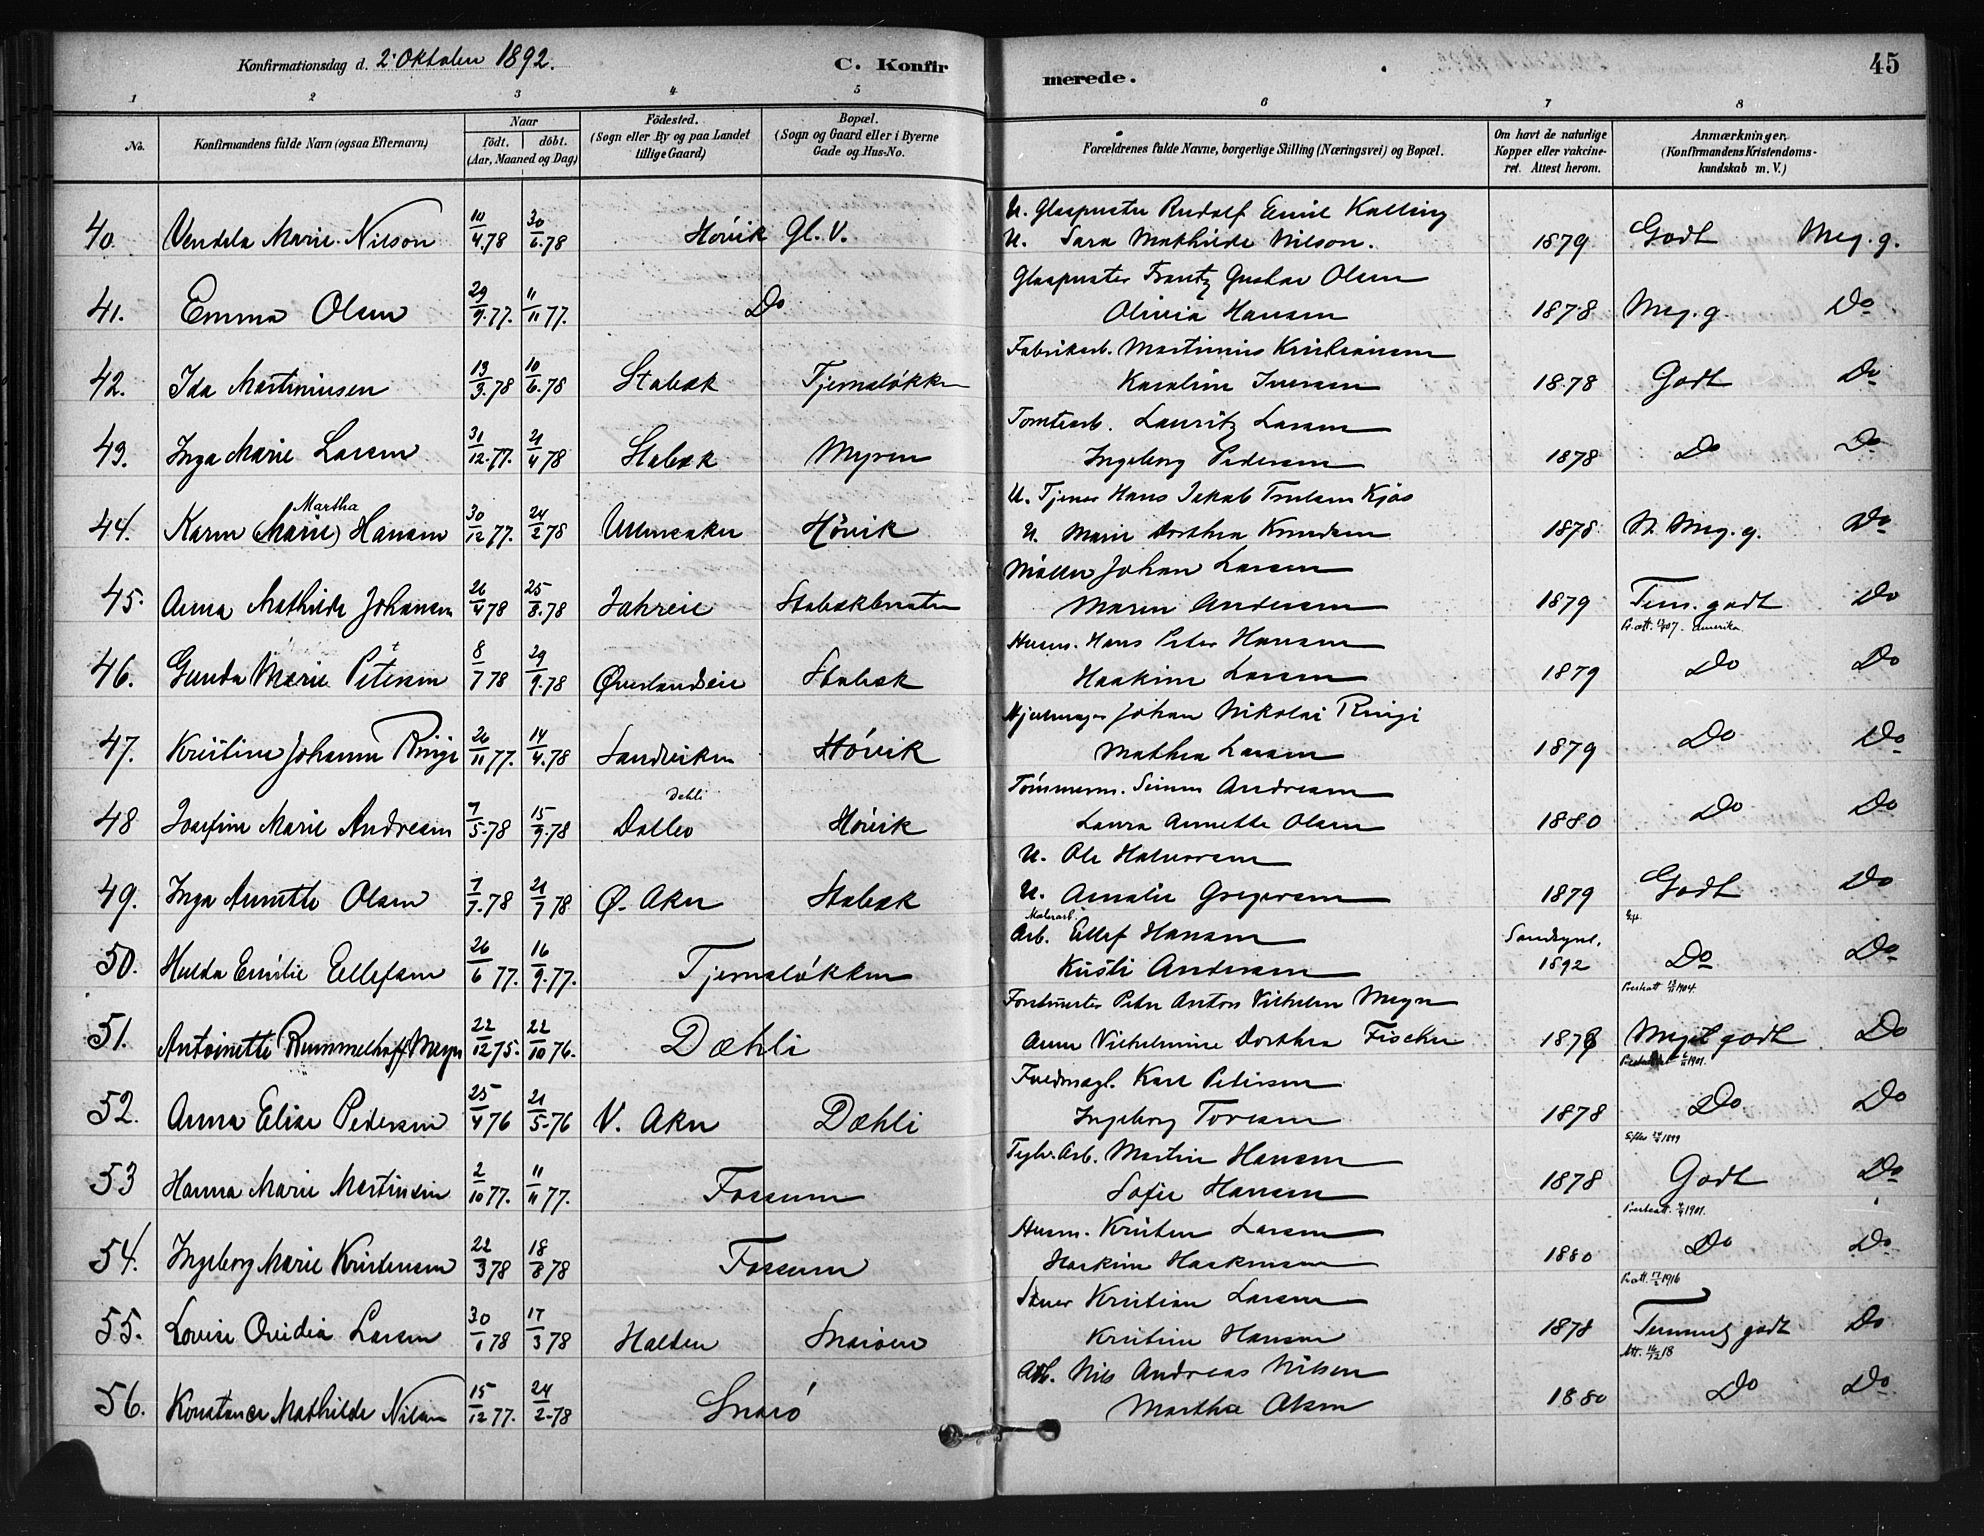 Konfirmationsdag d. 2. Oktober 1892. C. Konfirmerede. 45
1 2 3 4 5 6 7 8
No. Konfirmandens fulde Navn (ogsaa Efternavn) Naar født. døbt. (Aar, Maaned og Dag) Födested. (Sogn eller By og paa Landet tillige Gaard) Bopæl. (Sogn og Gaard eller i Byerne Gade og Hus-No. Forældrenes fulde Navne, borgerlige Stilling (Næringsvei) og Bopæl. Om havt de naturlige Kopper eller vakcineret. Attest herom. Anmærkninger. (Konfirmandens Kristendomskundskab m. V.)
U. Glaspuster Rudolf Emil Kalling
40. Vendela Marie Nilson 10/4.78 30/6.78 Høvik Gl. V. U. Sara Mathilde Nilson. 1879 Godt Meg. g.
Glaspuster Frantz Gustav Olsen
41. Emma Olsen 29/9.77. 11/11 77. Do Olivia Hansen 1878 Meg. g. Do
Fabrikarb. Martinius Kristiansen
42. Ida Martiniusen 13/3.78 10/6.78 Stabæk Tjernsløkken Karoline Iversen 1878 Godt Do
Tomtearb. Lauritz Larsen
43. Inga Marie Larsen 31/12.77. 21/4 78 Stabæk Myren Ingeborg Pedersen 1878 Do Do
U. Tjener Hans Jakob Kjøs
Martha
44. Karen (Marie) Hansen 30/12 77. 24/2 78 Ullensaker Høvik U. Marie Dorthea Knudsen 1878 N. Meg. g. Do
Møller Johan Larsen
45. Anna Mathilde Johansen 26/4 78 25/8.78 Jahreie Stabækbraaten Maren Andersen 1879 Tem. godt Do
Pr. att. 07. Amerika
Husm. Hans Peter Hansen
46. Gunda Marie Petersen 8/7 78 29/9.78 Øverlandseie Stabæk Haakine Larsen 1879 Do Do
Hjulmager Johan Nikolai Ringi
47. Kristine Johanne Ringi 26/11 77. 14/4.78 Sandviken Høvik Mathea Larsen 1879 Do Do
Tømmerm. Simen Andresen
Dehli
48 Josefine Marie Andresen 7/5.78 15/9.78 Dalbo Høvik Laura Annette Olsen 1880 Do Do
U. Ole Halvorsen
49. Inga Annette Olsen 7/7.78 21/7 78 Ø. Aker Stabæk U. Amalie Gregersen 1879 Godt Do
Malerarb.
Arb. Ellef Hansen Sandsynl.
50. Hulda Emilie Ellefsen 26/6 77. 16/9.77. Tjernsløkken Kristi Andersen 1892 Do Do
Prestatt 1904.
Forstmester Peter Anton Vilhelm Meyn
51. Antoinette Rummelhoff Meyn 22/12 75. 22/10 76. Dæhli Anna Vilhelmine Dorthea Fischer 1878 Meget godt Do
1901.
Fuldmægt. Karl Petersen
52. Anna Elise Pedersen 25/4 76 21/5.76 V. Aker Dæhli Ingeborg Toresen 1878 Do Do
1899
Teglv. Arb. Martin Hansen
53 Hanna Marie Martinsen 2/10 77. 11/11 77. Fossum Sofie Hansen 1878 Godt Do
Prestatt. 1901.
Husm. Kristen Larsen
54. Ingeborg Marie Kristensen 22/3 78 18/8 78 Fossum Haakine Haakensen 1880 Do Do
Pr att. 17/2 1916
Kristian Larsen
55. Lovise Ovidia Larsen 30/1 78 17/3 78 Halden Snarøen Kristine Hansen 1878 Temmel. godt Do
Att. 16/12 18
Arb. Nils Andreas Nilsen
56. Konstance Mathilde Nilsen 15/12 77. 24/2.78 Snarø Martha Olsen 1880 Do Do